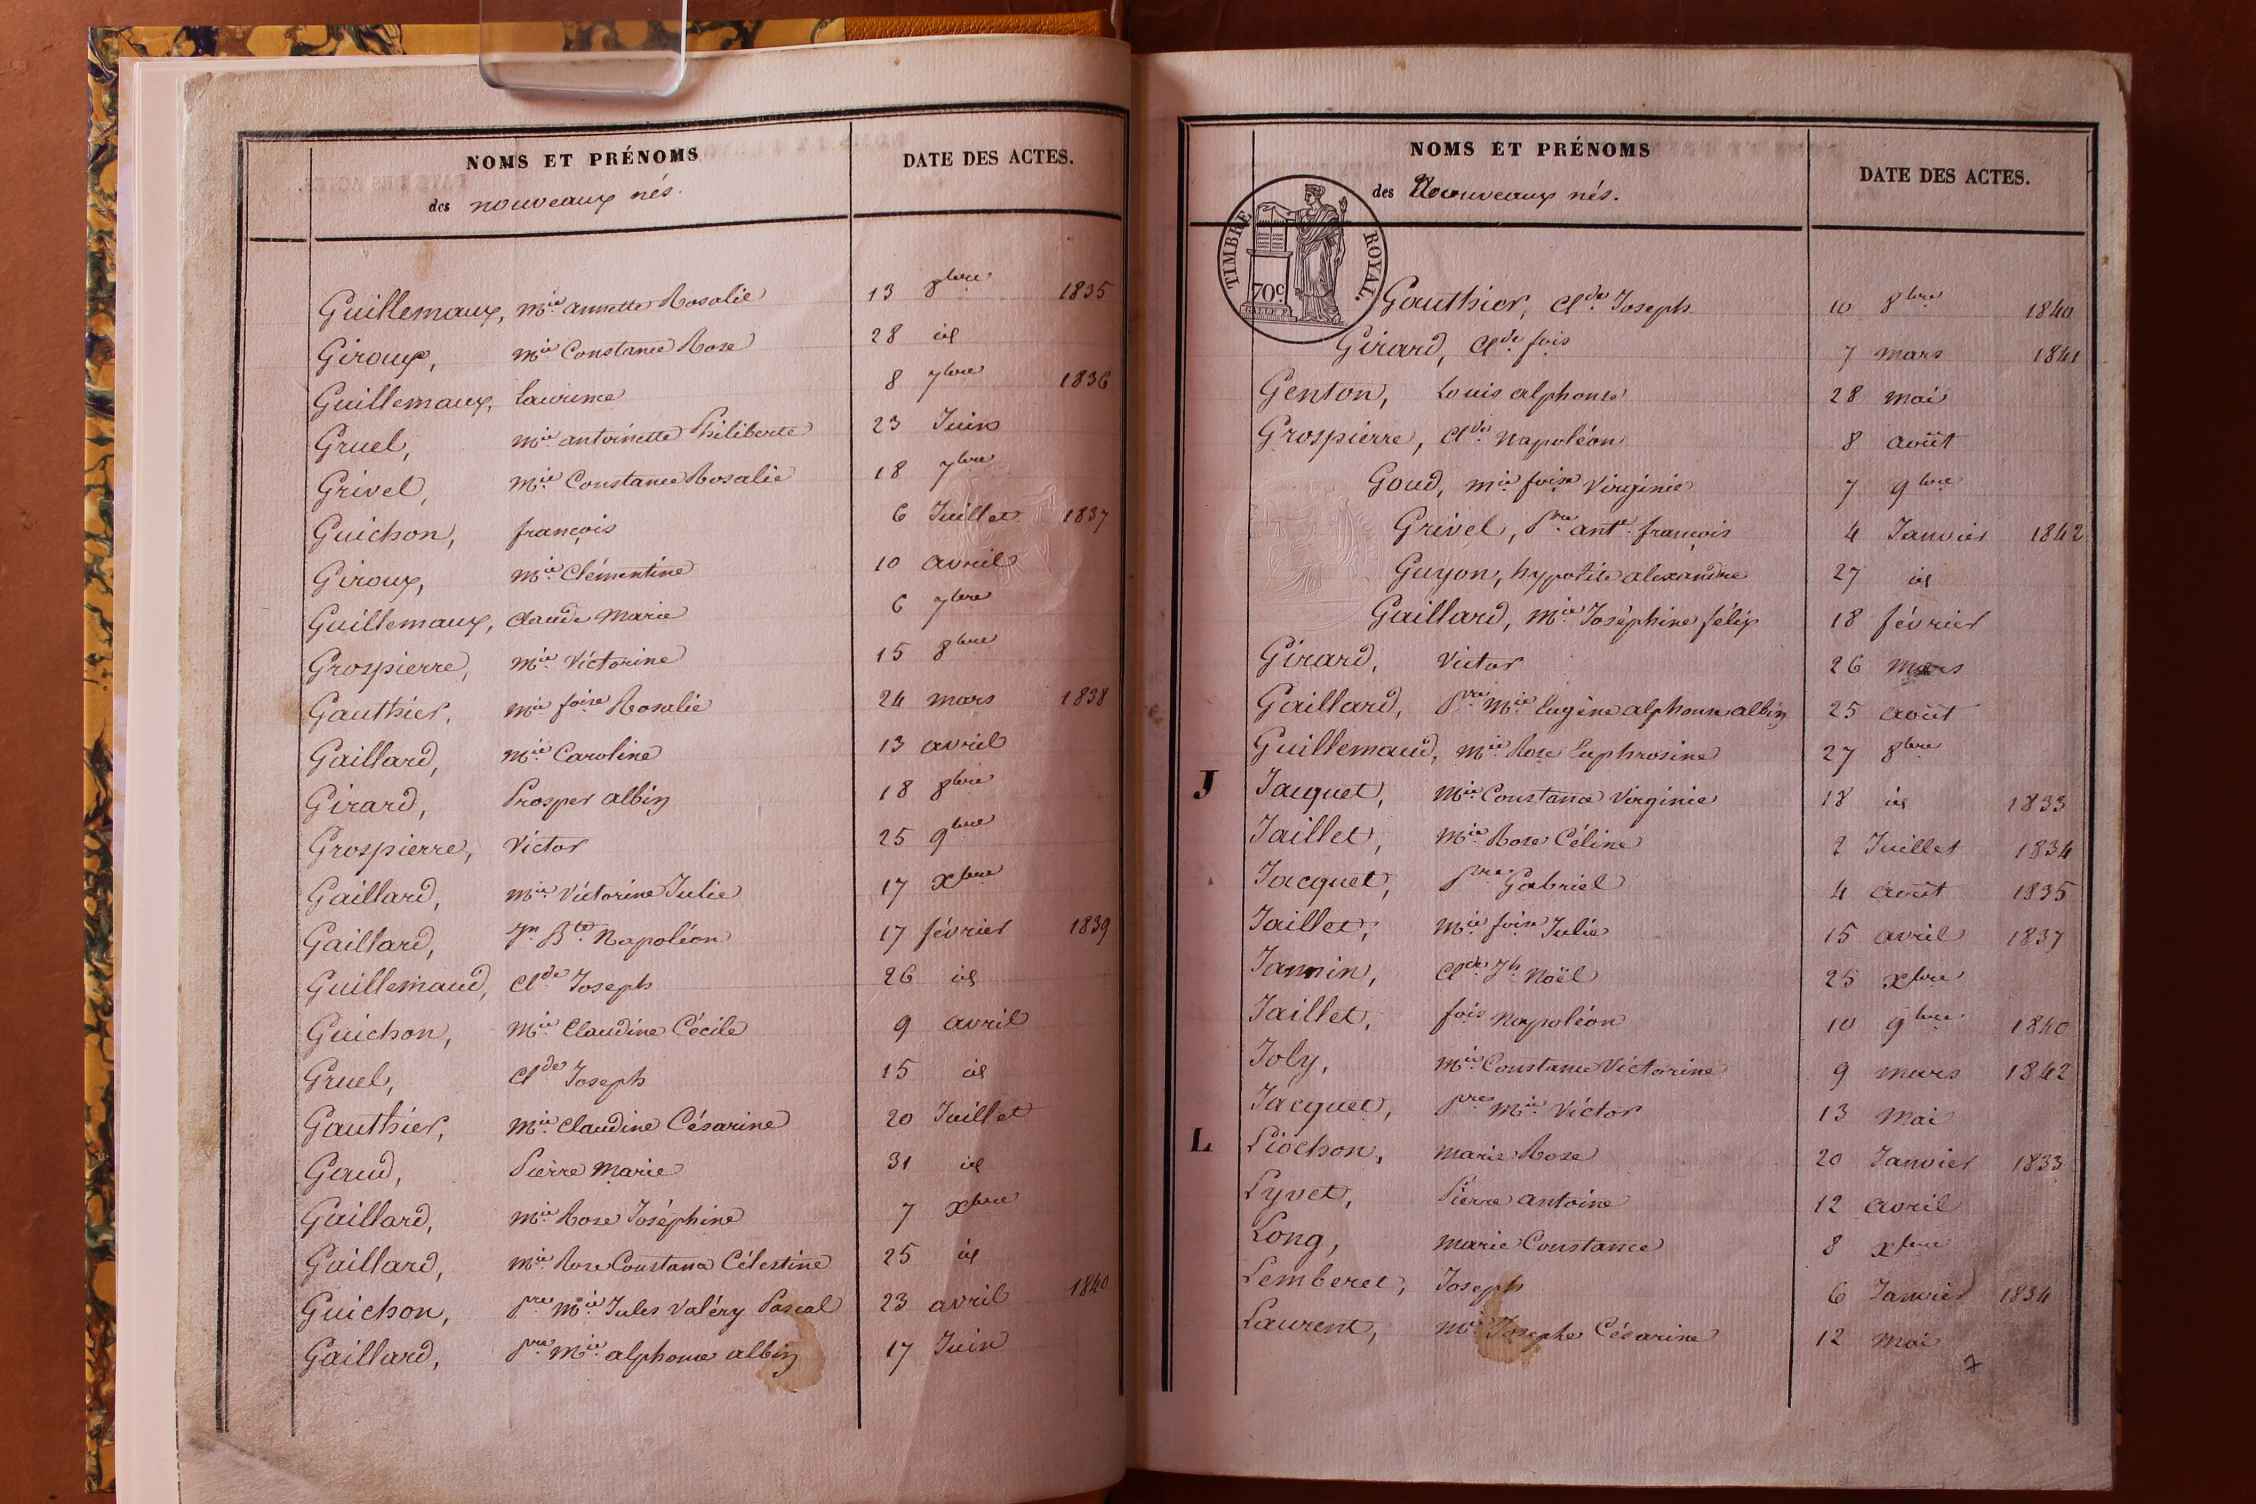 NOMS ET PRÉNOMS
des nouveaux nés.
DATE DES ACTES.
Guillemaux, Mie annette Rosalie 13 8bre 1835
Giroux, Mie Constance Rose 28 id
Guillemaux, Laurence 8 7bre 1836
Gruel, Mie antoinette Philiberte 23 Juin
Grivel, Mie Constance Rosalie 18 7bre
Guichon, françois 6 Juillet 1837
Giroux, Mie Clémentine 10 avril
Guillemaux, Claude Marie 6 7bre
Grospierre, Mie Victorine 15 8bre
Gauthier, Mie foise Rosalie 24 mars 1838
Gaillard, Mie Caroline 13 avril
Girard, Prosper albin 18 8bre
Grospierre, Victor 25 9bre
Gaillard, Mie Victorine Julie 17 Xbre
Gaillard, Jn Bte Napoléon 17 février 1839
Guillemaud, Clde Joseph 26 id
Guichon, Mie Claudine Cécile 9 avril
Gruel, Clde Joseph 15 id
Gauthier, Mie Claudine Césarine 20 Juillet
Goud, Pierre Marie 31 id
Gaillard, Mie Rose Joséphine 7 Xbre
Gaillard, Mie Rose Constance Célestine 25 id
Guichon, pre Mie Jules Valéry Pascal 23 avril 1840
Gaillard, pre Mie alphonse albin 17 Juin
NOMS ET PRÉNOMS
des Nouveaux nés.
DATE DES ACTES.
TIMBRE ROYAL.
70c
Gauthier, Clde Joseph 10 8bre 1840
Girard, Clde fois 7 mars 1841
Genton, Louis alphonse 28 mai
Grospierre, Clde Napoléon 8 août
Goud, Mie foise Virginie 7 9bre
Grivel, Pre ant. françois 4 Janvier 1842
Guyon, hypolite alexandre 27 id
Gaillard, Mie Joséphine félix 18 février
Girard, Victor 26 mars
Gaillard, Pre Mie Eugène alphonse albin 25 août
Guillemaud, Mie Rose Euphrosine 27 8bre
J Jacquet, Mie Constance Virginie 18 id 1833
Jaillet, Mie Rose Céline 2 Juillet 1834
Jacquet, Pre Gabriel 4 août 1835
Jaillet, Mie foise Julie 15 avril 1837
Jannin, Clde Jh Noël 25 Xbre
Jaillet, fois Napoléon 10 9bre 1840
Joly, Mie Constance Victorine 9 mars 1842
Jacquet, pre Mie Victor 13 Mai
L Liochon, Marie Rose 20 Janvier 1833
Lyvet, Pierre antoine 12 avril
Long, Marie Constance 8 Xbre
Lemberet, Joseph 6 Janvier 1834
Laurent, Mie Josephe Césarine 12 Mai